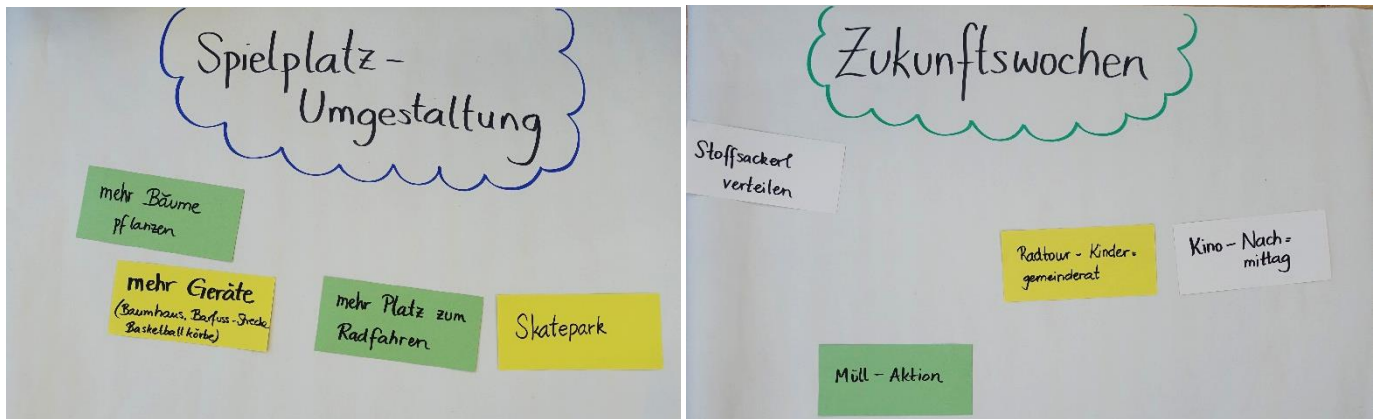 Spielplatz-
Umgestaltung
mehr Bäume
pflanzen
mehr Geräte
(Baumhaus, Barfuss-Strecke
Basketballkörbe)
mehr Platz zum
Radfahren
Skatepark
Zukunftswochen
Stoffsackerl
verteilen
Radtour - Kinder=
gemeinderat
Kino - Nach=
mittag
Müll - Aktion